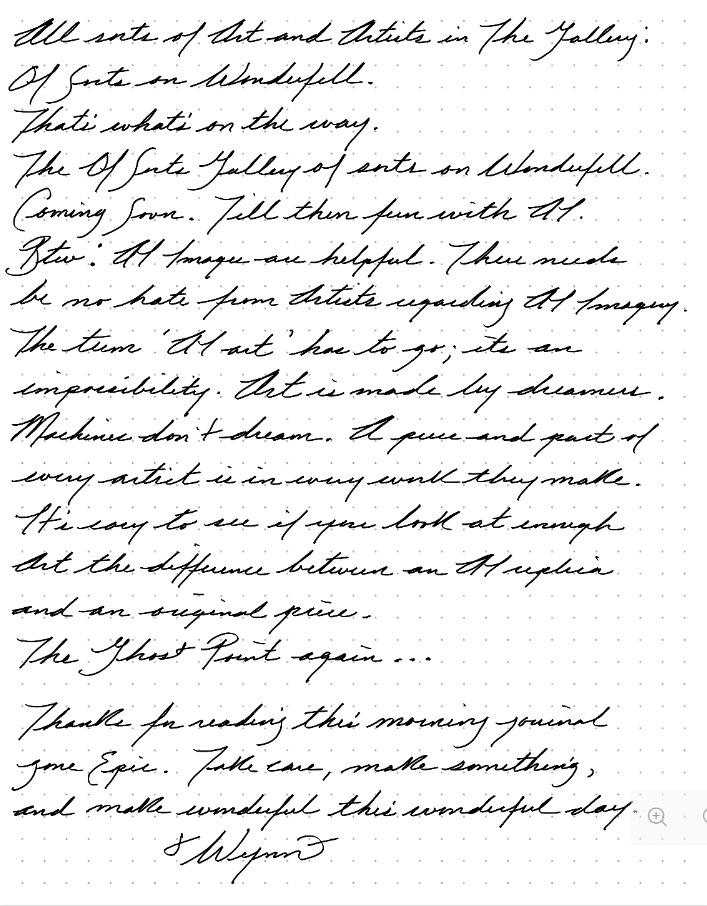 All sorts of Art and Artists in The Gallery.
Of Sorts on Wonderfell.
That's what's on the way.
The Of Sorts Gallery of sorts on Wonderfell.
Coming Soon. Till then fun with AI.
Btw: AI Images are helpful. There needs
be no hate from Artists regarding AI Imagery.
The term 'AI art' has to go; its an
impossibility. Art is made by dreamers.
Machines don't dream. A piece and part of
every artist is in every work they make.
It's easy to see if you look at enough
Art the difference between an AI replica
and an original piece.
The Ghost Point again...
Thanks for reading this morning journal
gone Epic. Take care, make something,
and make wonderful this wonderful day.
Wynn